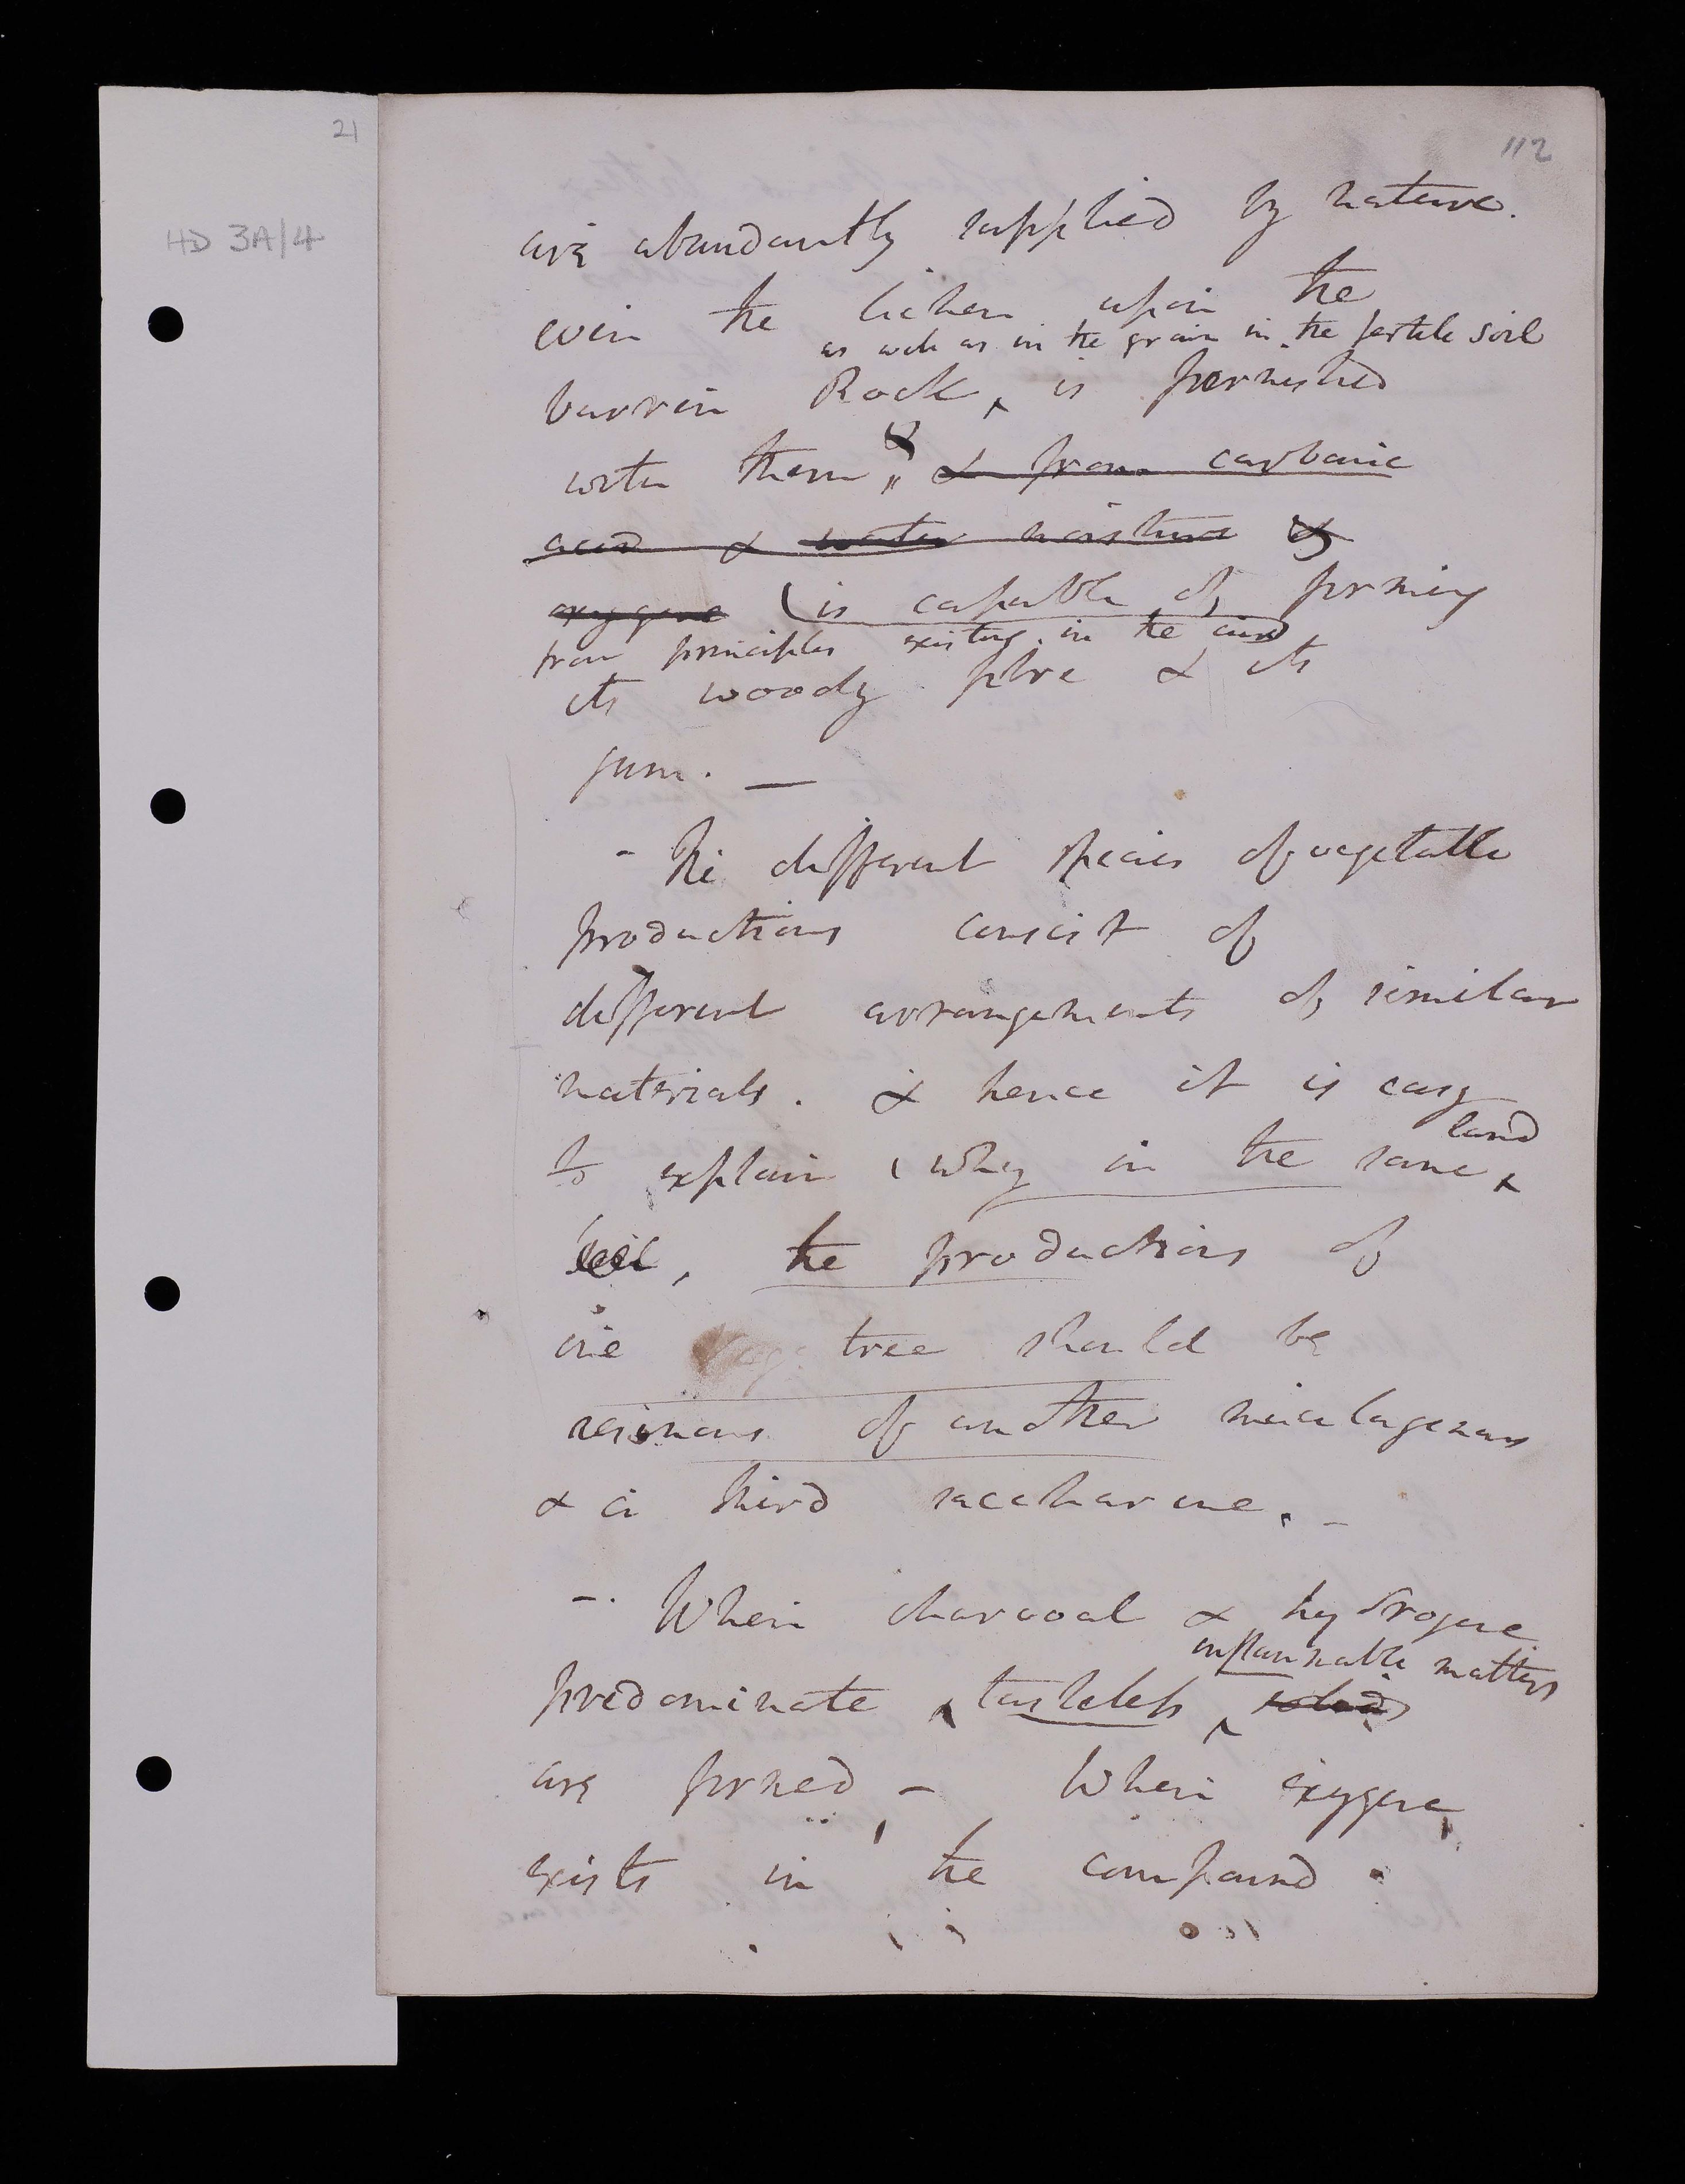 21
HD 3A/4
112
are abundantly supplied by nature.
even the lichen upon the
as well as in the grain in the fertile soil
barren Rock, is furnished
with them, & & from carbonic
acid & water moisture &
oxygene (is capable of forming
from principles existing in the air
its woody fibre & its
gum. —
- The different species of vegetable
productions consist of
different arrangements of similar
materials. & hence it is easy
land
to explain (why in the same
soil, the productions of
one tree should be
resinous of another mucilagenous
& a third saccharine. -
- When charcoal & hydrogene
inflammable matters
predominate tasteless solids
are formed - When oxygene
exists in the compound